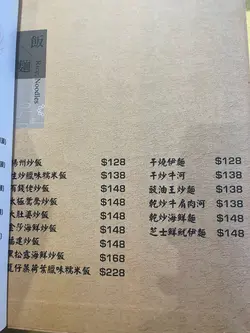 飯
麵
Rice/Noodles
州炒飯 $128
炒臘味糯米飯 $138
有錢佬炒飯 $148
太極鴛鴦炒飯 $148
大肚婆炒飯 $148
金莎海鮮炒飯 $148
福建炒飯 $148
黑松露海鮮炒飯 $168
籠仔蒸荷葉臘味糯米飯 $228
干燒伊麵 $128
干炒牛河 $138
豉油王炒麵 $148
乾炒牛肩肉河 $148
乾炒海鮮麵 $148
芝士鮮魷伊麵 $148